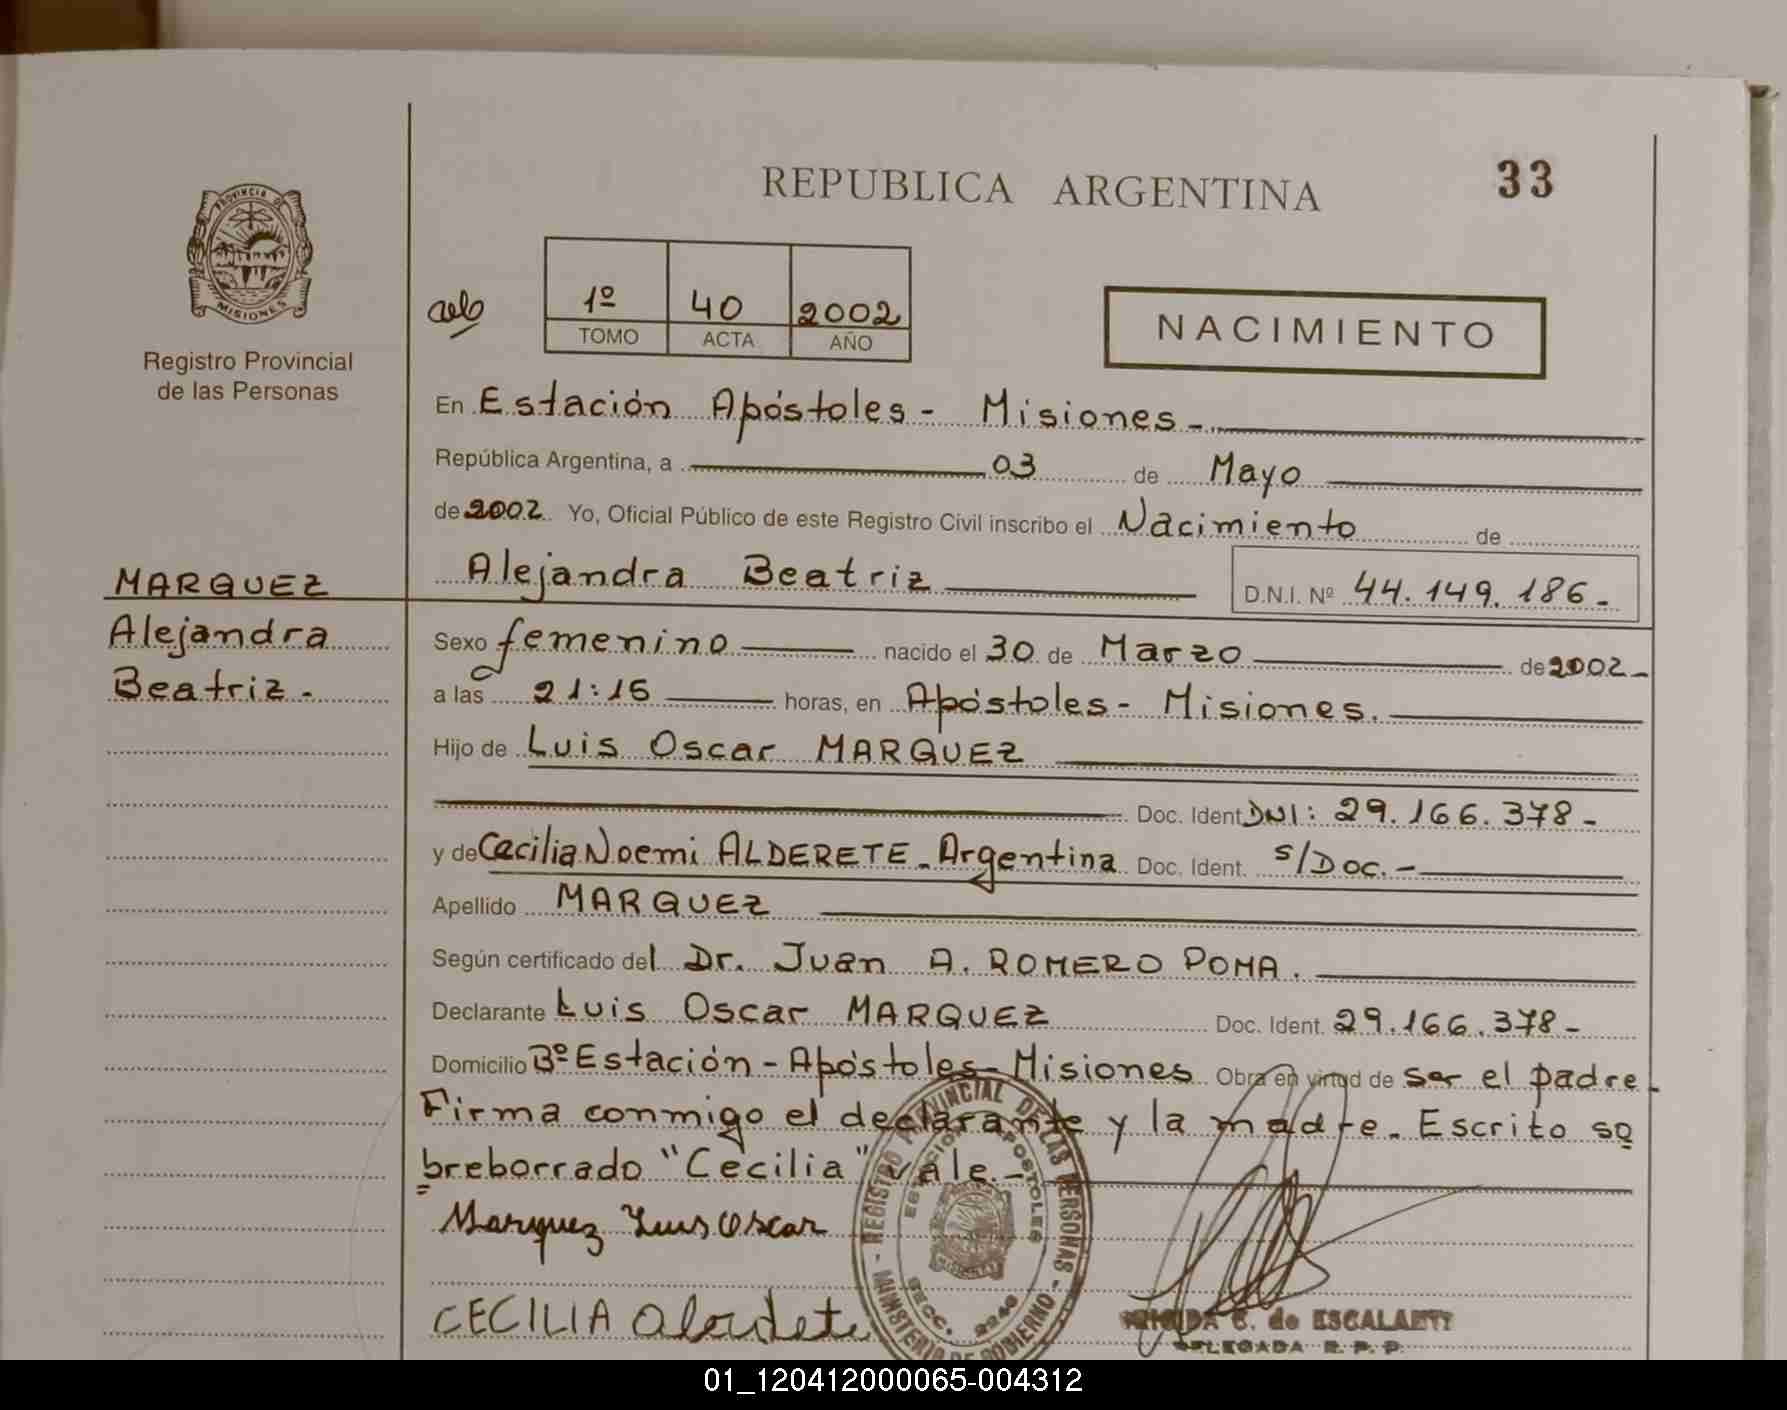 REPUBLICA ARGENTINA
33
PROVINCIA DE
MISIONES
Registro Provincial
de las Personas
1º 40 2002
TOMO ACTA AÑO
NACIMIENTO
En Estación Apóstoles - Misiones -
República Argentina, a 03 de Mayo
de 2002 Yo, Oficial Público de este Registro Civil inscribo el Nacimiento de
Alejandra Beatriz D.N.I. Nº 44.149.186-
MARQUEZ
Alejandra
Beatriz -
Sexo femenino nacido el 30 de Marzo de 2002-
a las 21:15 horas, en Apóstoles - Misiones.
Hijo de Luis Oscar MARQUEZ
Doc. Ident DNI: 29.166.378-
y de Cecilia Noemi ALDERETE - Argentina Doc. Ident. S/Doc.-
Apellido MARQUEZ
Según certificado del Dr. Juan A. ROMERO POMA.
Declarante Luis Oscar MARQUEZ Doc. Ident. 29.166.378-
Domicilio Bº Estación - Apóstoles - Misiones Obra en virtud de ser el padre-
Firma conmigo el declarante y la madre. Escrito so
breborrado "Cecilia" vale.-
Marquez Luis Oscar
CECILIA Alerdete
REGISTRO PROVINCIAL DE LAS PERSONAS - MINISTERIO DE GOBIERNO -
ESTACION APOSTOLES
SECC. 2240
C. de ESCALANTE
DELEGADA R. P. P.
01_120412000065-004312